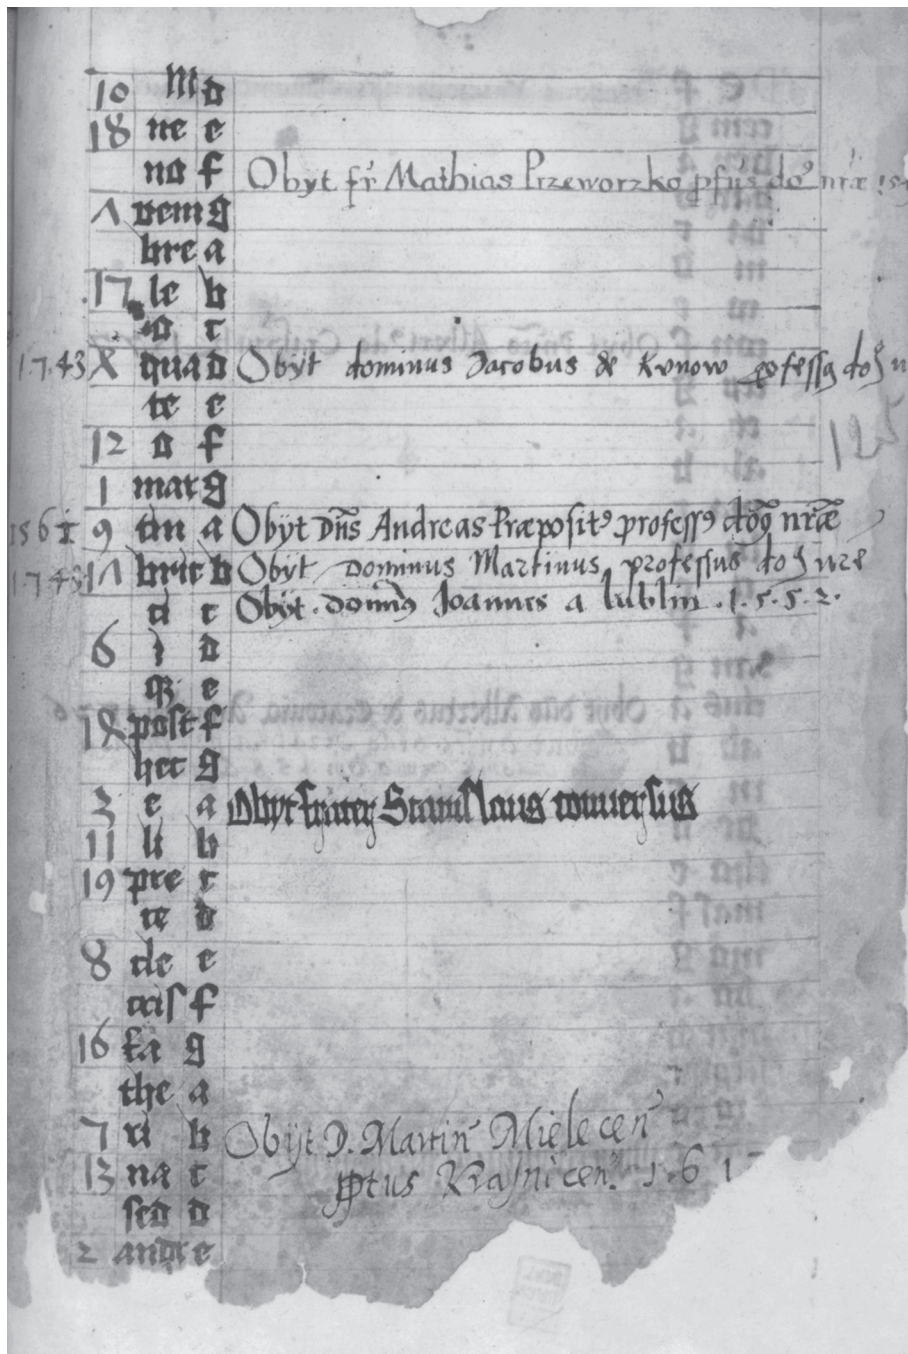 10 M d
18 ne e
no f Obÿt fr̃ Mathias Przeworzko pfus do⁹ nr̃æ
Λ vem g
bre a
17 le b
o c
1743 X qua d Obÿt dominus Jacobus de professus
te e
12 o f
125
1 mar g
1561 9 tin a Obÿt Dñs Andreas Præposit⁹ professꝰ nr̃æ
1743 bric b Obÿt Dominus Martinus professus nre
ci c Obÿt . domin⁹ Joannes a lublin . 1.5.5.2.
6 i d
qꝫ e
18 post f
hec g
3 e a Obyt frater Stanislaus conversus
11 li b
19 pre c
te d
8 de e
cas f
16 ka g
the a
7 ri b Obÿt D. Martin⁹ Mielecen⁹
13 na c pptus Krasnicen⁹. 1.6 1
sed d
2 andr e